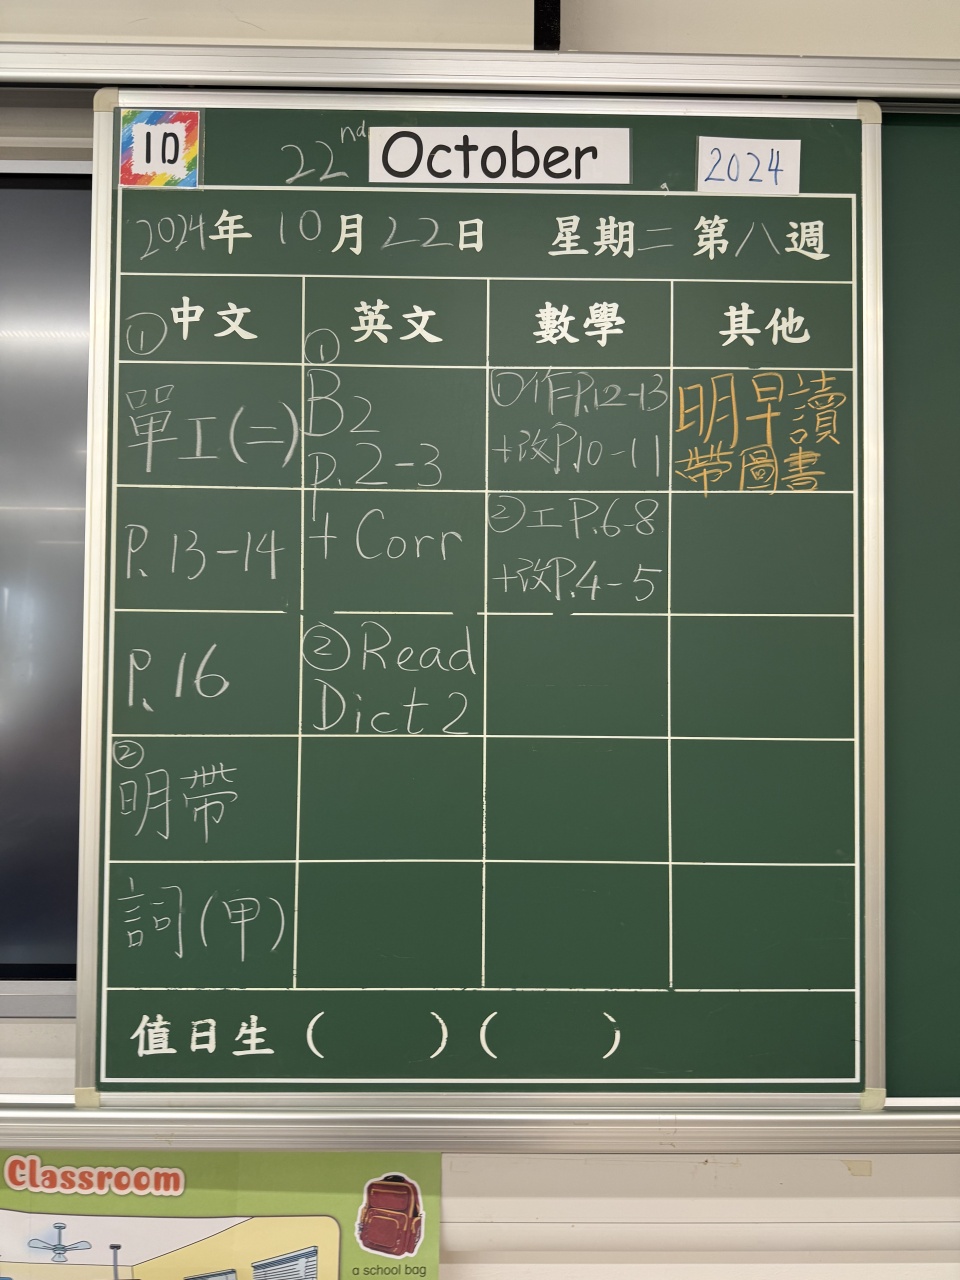 1D
22nd October 2024
2024年 10月 22日 星期二 第八週
① 中文
① 英文
數學
其他
單工(二)
P. 13-14
P. 16
② 明帶
詞(甲)
B2
p. 2-3
+ Corr
② Read
Dict 2
① 作P.12-13
+改P.10-11
② 工 P.6-8
+改P.4-5
明早讀
帶圖書
值日生 ( ) ( )
Classroom
a school bag